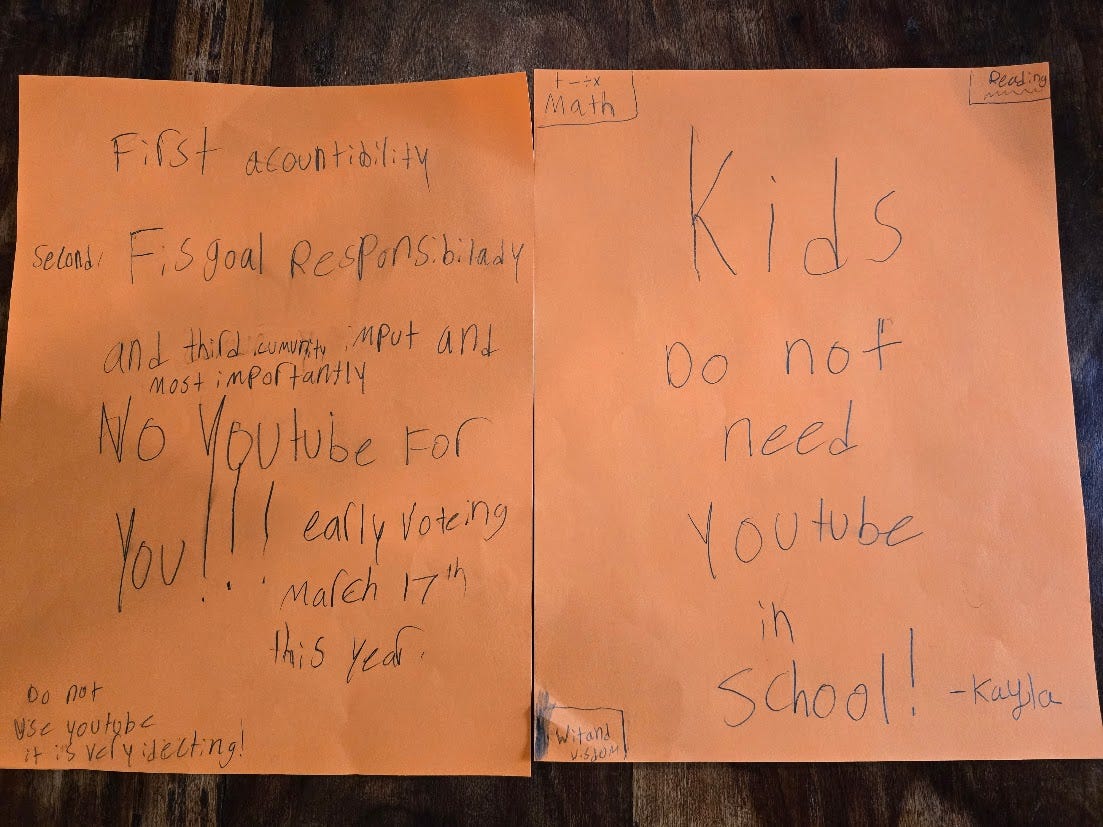 First acountibility
Second, Fisgoal Responsibilady
and third cumunity input and
most importantly
No Youtube For
You!!! early voteing
march 17th
this year.
Do not
use youtube
it is very idecting!
+ - ÷ x
Math
Reading
Kids
Do not
need
Youtube
in
School! -Kayla
Wit and
Wisdom